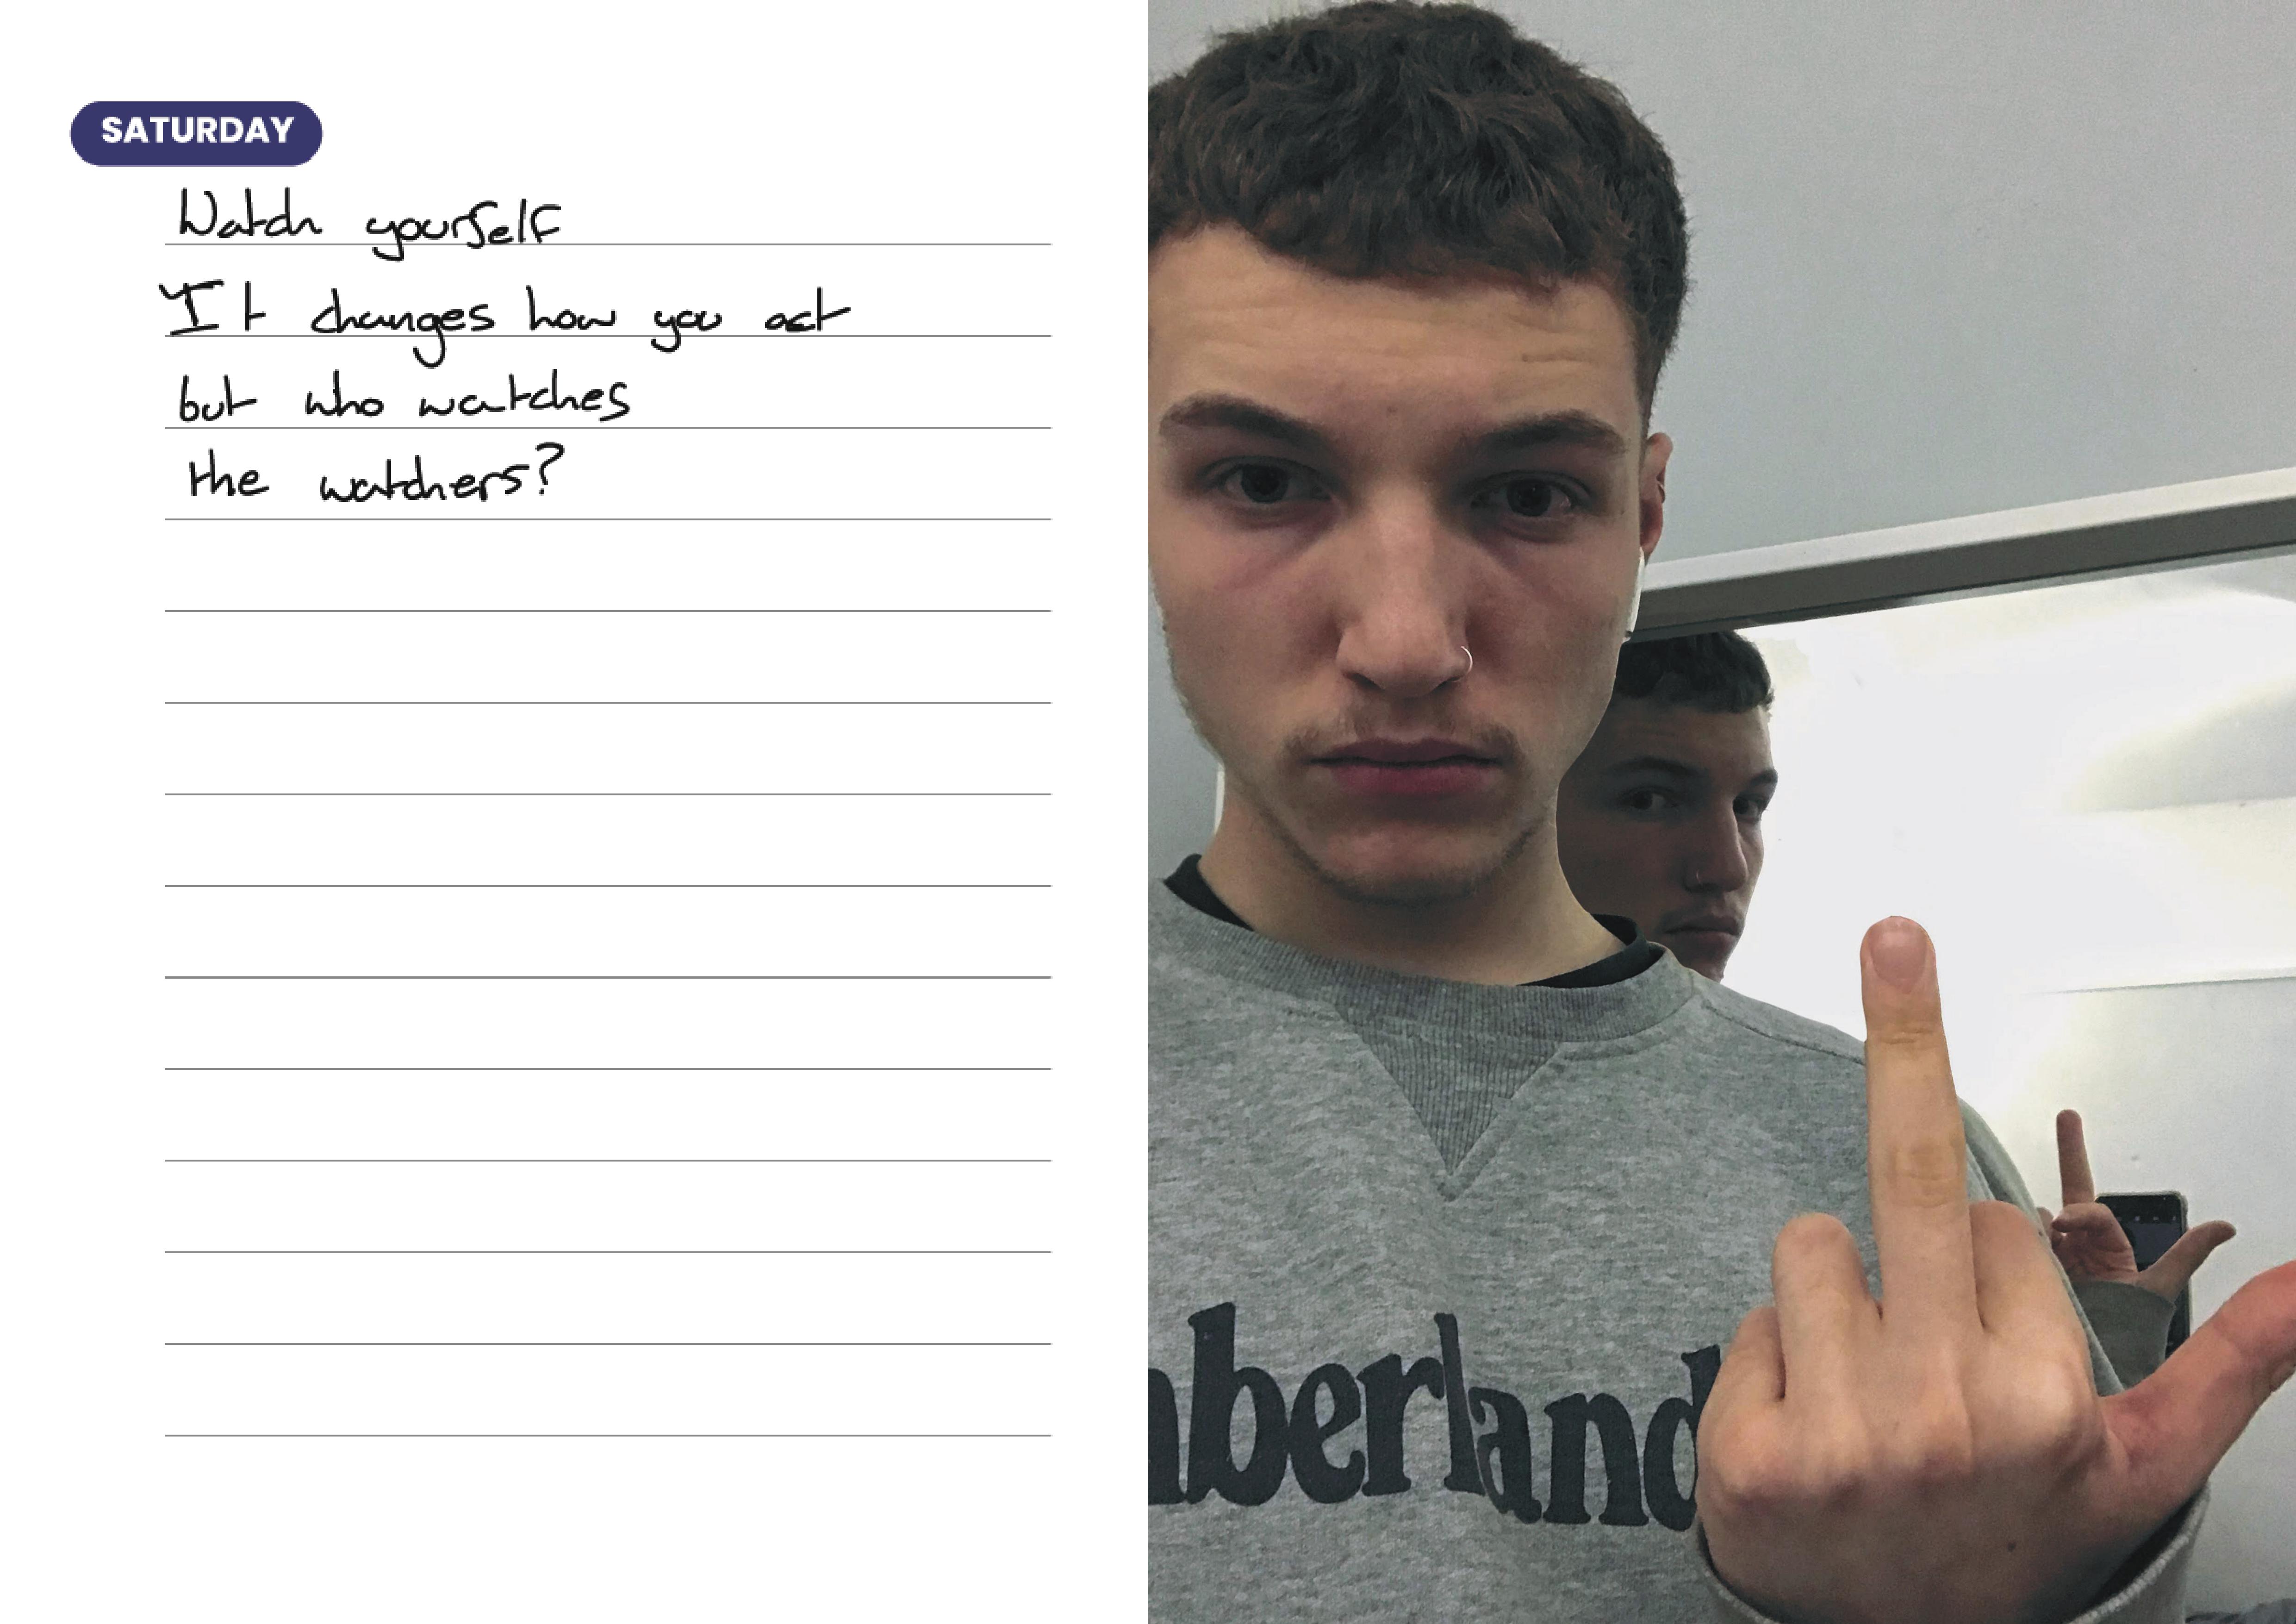 SATURDAY
Watch yourself
It changes how you act
but who watches
the watchers?
mberland